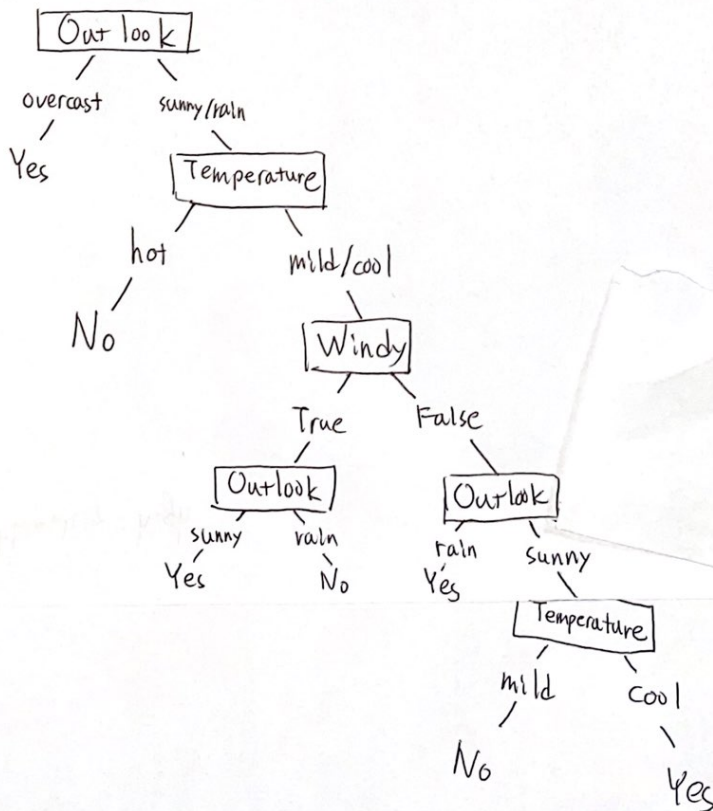 Outlook
overcast sunny/rain
Yes
Temperature
hot mild/cool
No
Windy
True False
Outlook Outlook
sunny rain rain sunny
Yes No Yes
Temperature
mild cool
No Yes